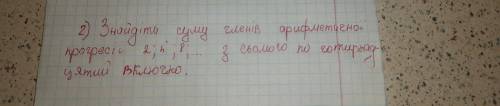 2) Знайдіть суму членів арифметично
прогресії 2; 5; 8; ... з сьомого по чотирнад
цятий включно.